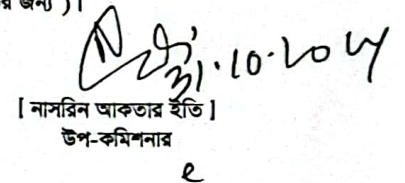 র জন্য )।
31.10.2024
[ নাসরিন আকতার ইতি ]
উপ-কমিশনার